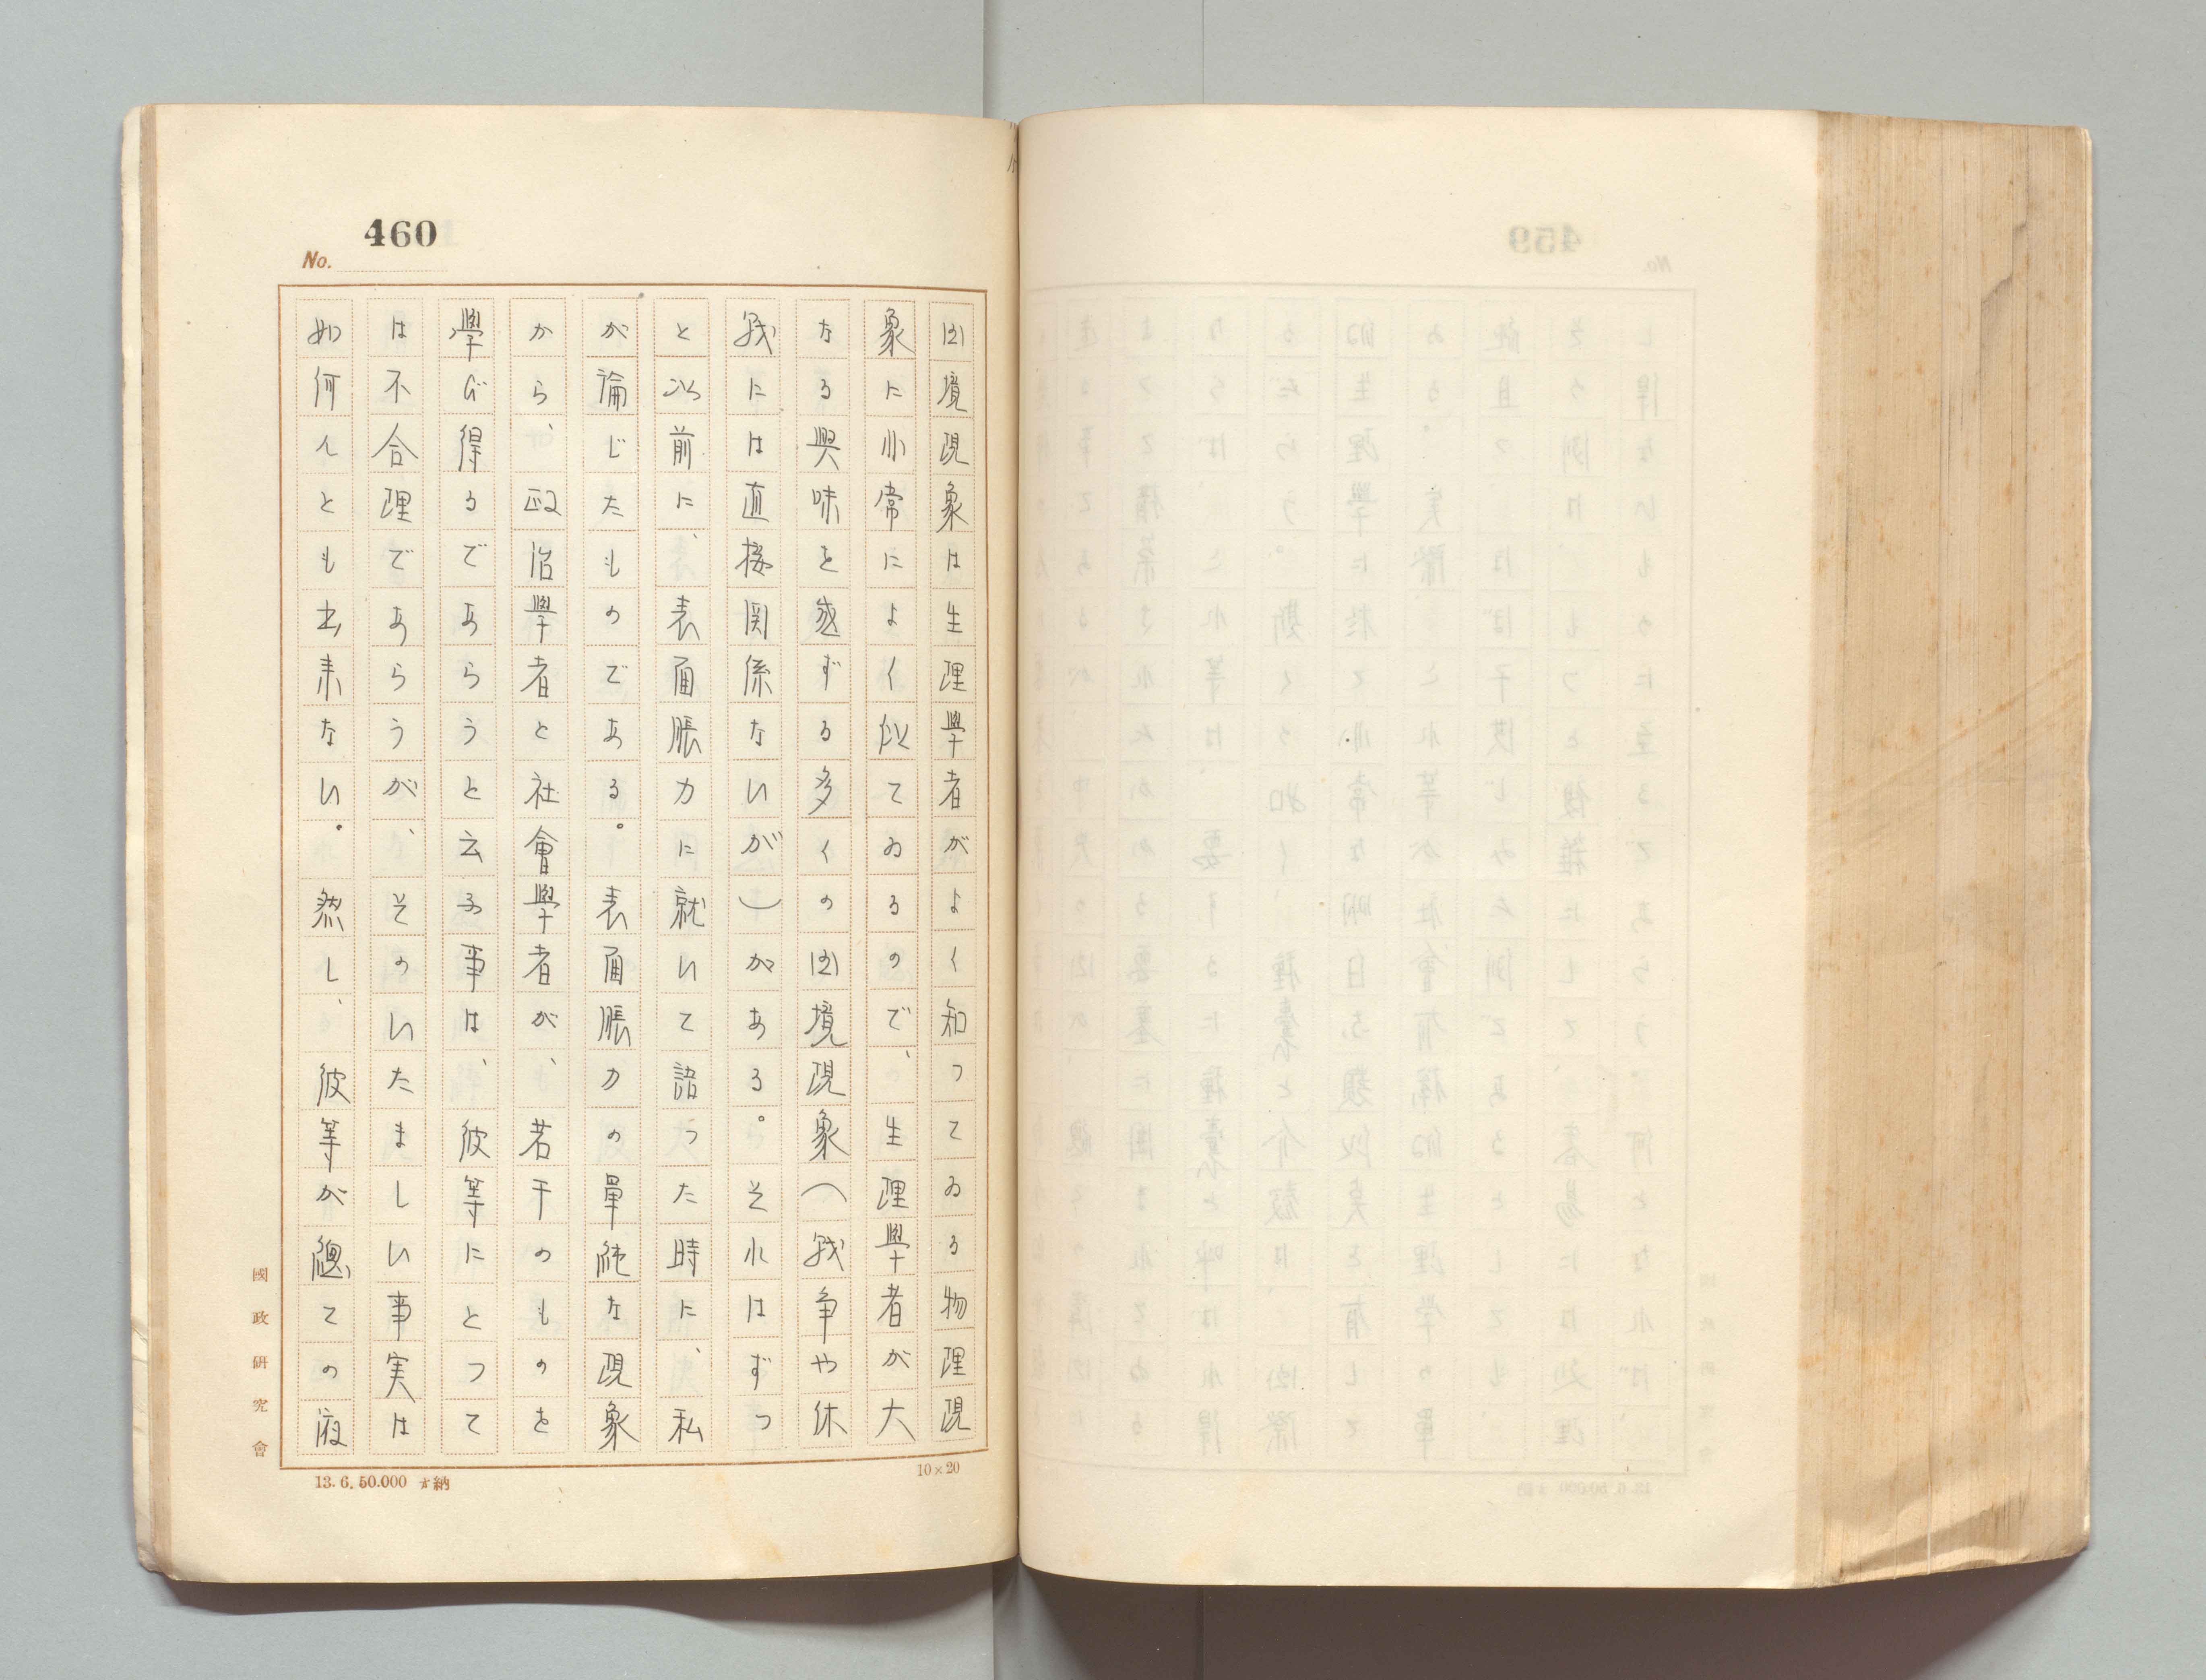 460
No.
国境現象は生理學者がよく知つてゐる物理現
象に非常によく似てゐるので、生理學者が大
なる興味を感ずる多くの国境現象(戦争や休
戦には直接関係ないが)がある。それはずつ
と以前に、表面脹力に就いて語つた時に、私
が論じたものである。表面脹力の單純な現象
から、政治學者と社會學者が、若干のものを
學び得るであらうと云ふ事は、彼等にとつて
は不合理であらうが、そのいたましい事実は
如何んとも出来ない。然し、彼等が總ての液
國政研究會
13. 6. 50.000 納
10×20